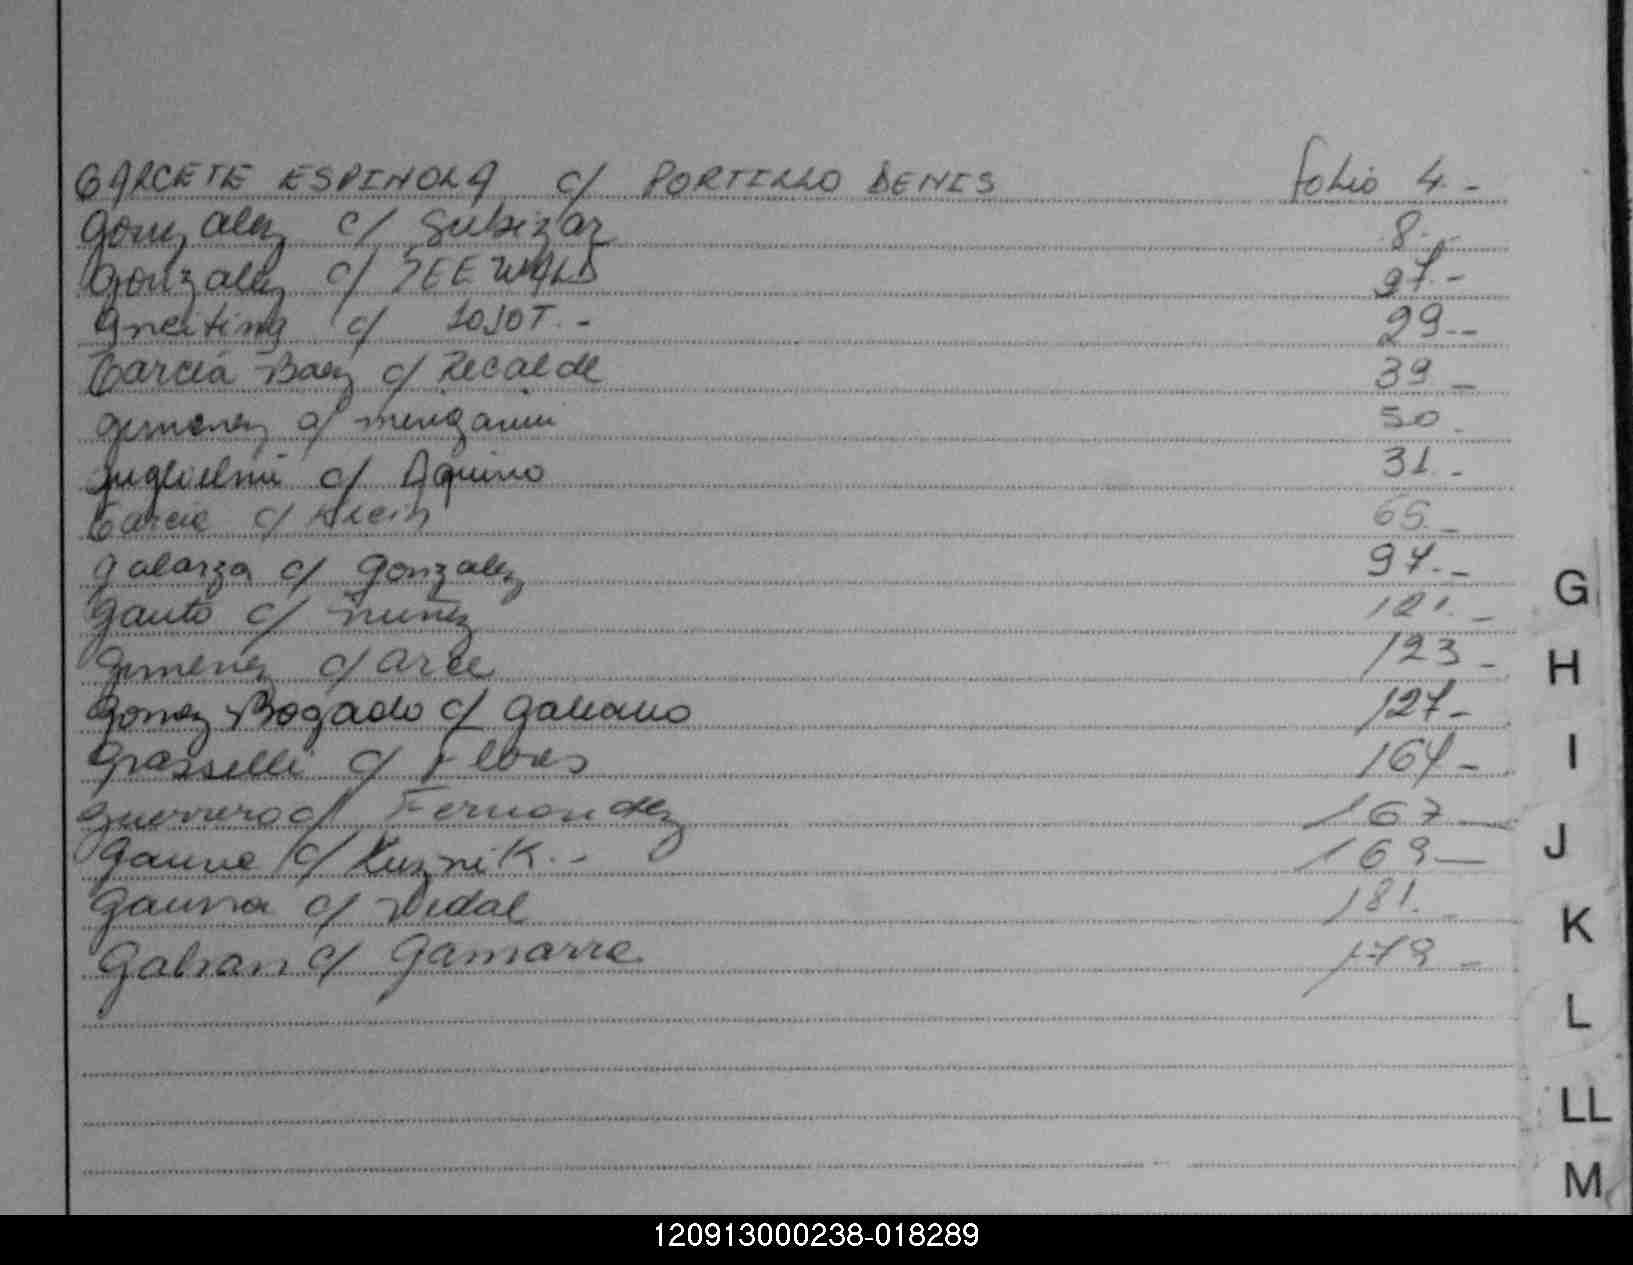 GARCETE ESPINOLA c/ PORTILLO DENIS folio 4.-
Gonzalez c/ Subizar 8.-
Gonzalez c/ SEEWALD 97.-
Gneiting c/ LOJOT.- 29.-
Garcia Baez c/ Recalde 39.-
Gimenez c/ 50.-
Guglielmi c/ Aquino 31.-
Garcia c/ 65.-
Galarza c/ Gonzalez 97.-
Gauto c/ Nuñez 121.-
Gimenez c/ Arce 123.-
Gomez Bogado c/ Galeano 127-
Grasselli c/ Flores 164-
Guerrero c/ Fernandez 167-
Gauna c/ Kusnik.- 169-
Gauna c/ Vidal 181.-
Galvan c/ Gamarra 179-
G
H
I
J
K
L
LL
M
120913000238-018289